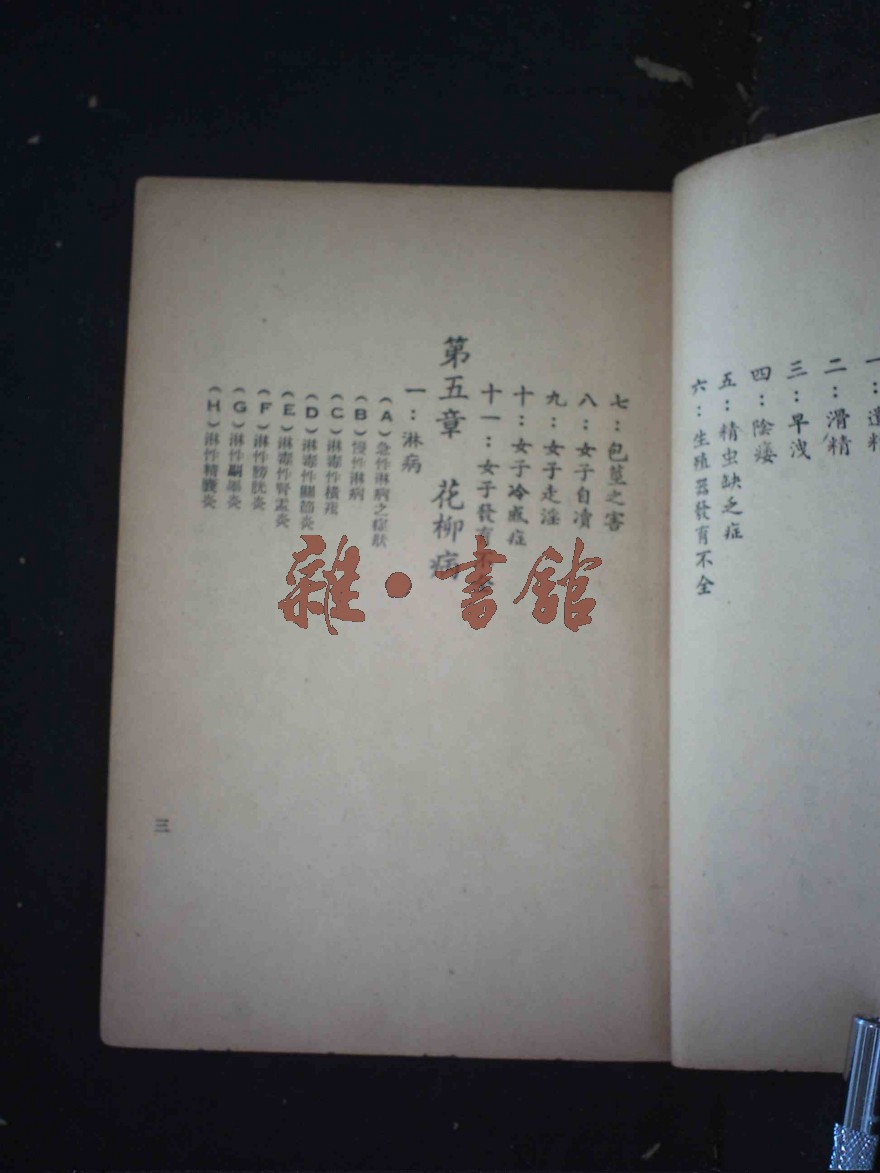 一：遺精
二：滑精
三：早洩
四：陰痿
五：精虫缺乏症
六：生殖器發育不全
七：包莖之害
八：女子自瀆
九：女子走淫
十：女子冷感症
十一：女子發育不全
第五章 花柳病
一：淋病
（A）急性淋病之症狀
（B）慢性淋病
（C）淋毒性橫痃
（D）淋毒性關節炎
（E）淋毒性腎盂炎
（F）淋性膀胱炎
（G）淋性副睾炎
（H）淋性精囊炎
三
雜·書館